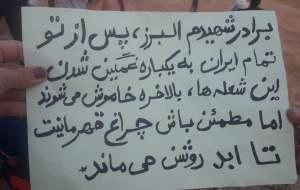 برادر شهیدم البرز، پس از تو
تمام ایران به یکباره غمگین شدن
این شعله ها، بالاخره خاموش می شوند
اما مطمئن باش چراغ قهرمانیت
تا ابد روشن می ماند